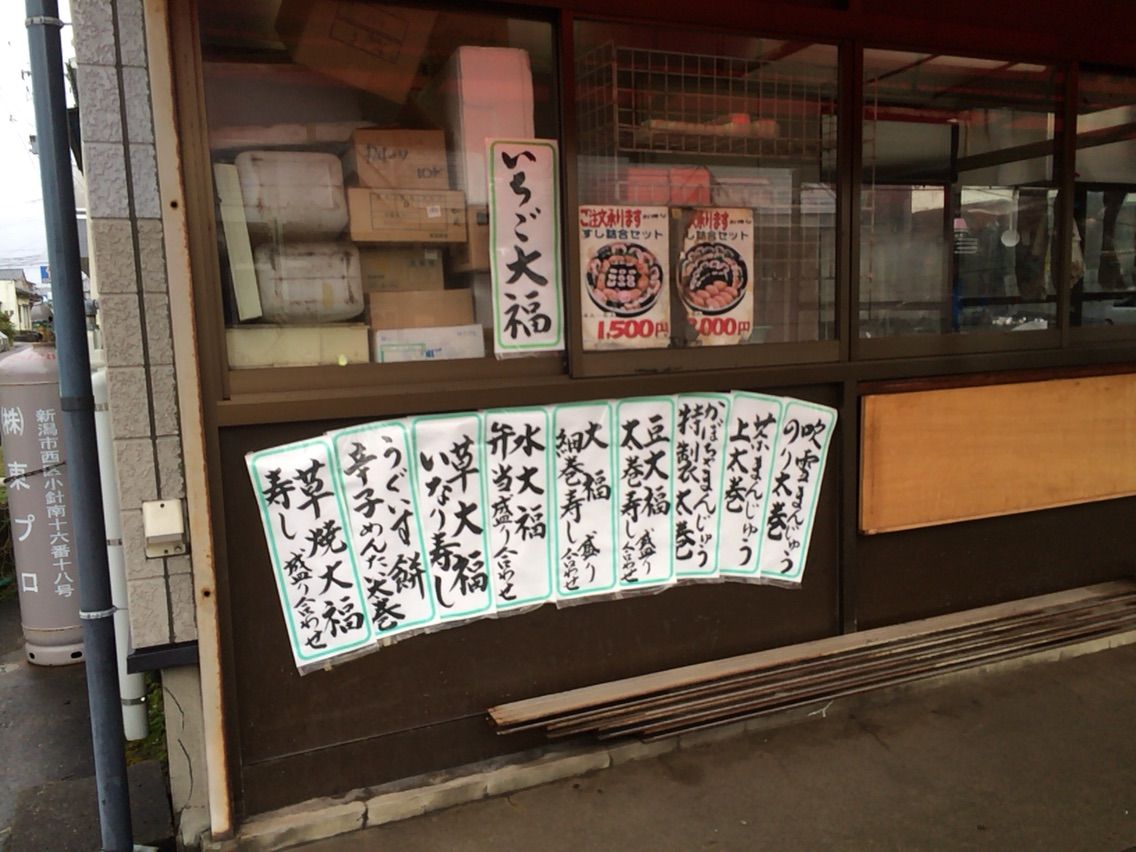 いちご大福
ご注文承ります
すし詰合セット
1,500円
文承ります
すし詰合セット
,000円
吹雪まんじゅう
のり太巻
茶まんじゅう
上太巻
かぼちゃまんじゅう
特製太巻
豆大福
太巻寿し盛り合わせ
大福
細巻寿し盛り合わせ
水大福
弁当盛り合わせ
草大福
いなり寿し
うぐいす餅
辛子めんた太巻
草焼大福
寿し盛り合わせ
(株)東プロ
新潟市西区小針南十六番十八号